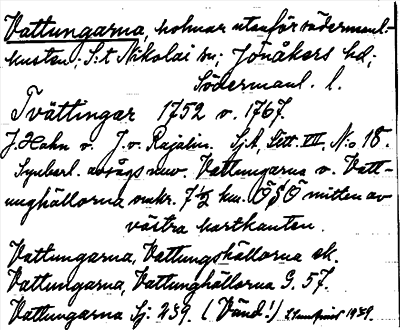 Vattungarna, holmar utanför södermanl.-
kusten; S:t Nikolai sn; Jönåkers hd;
Södermanl. l.
Tvättingar 1752 o. 1767.
J. Hahn o. J. v. Rajalin. SjA, Litt. VII, N:o 18.
Synberl. avsågs nuv. Vattungarna o. Vatt-
unghällorna omkr. 7½ km. ÖSÖ mitten av
västra kartkanten.
Vattungarna, Vattungshällorna ek.
Vattungarna, Vattunghällorna G. 57.
Vattungarna Sj: 239. (Vänd!)